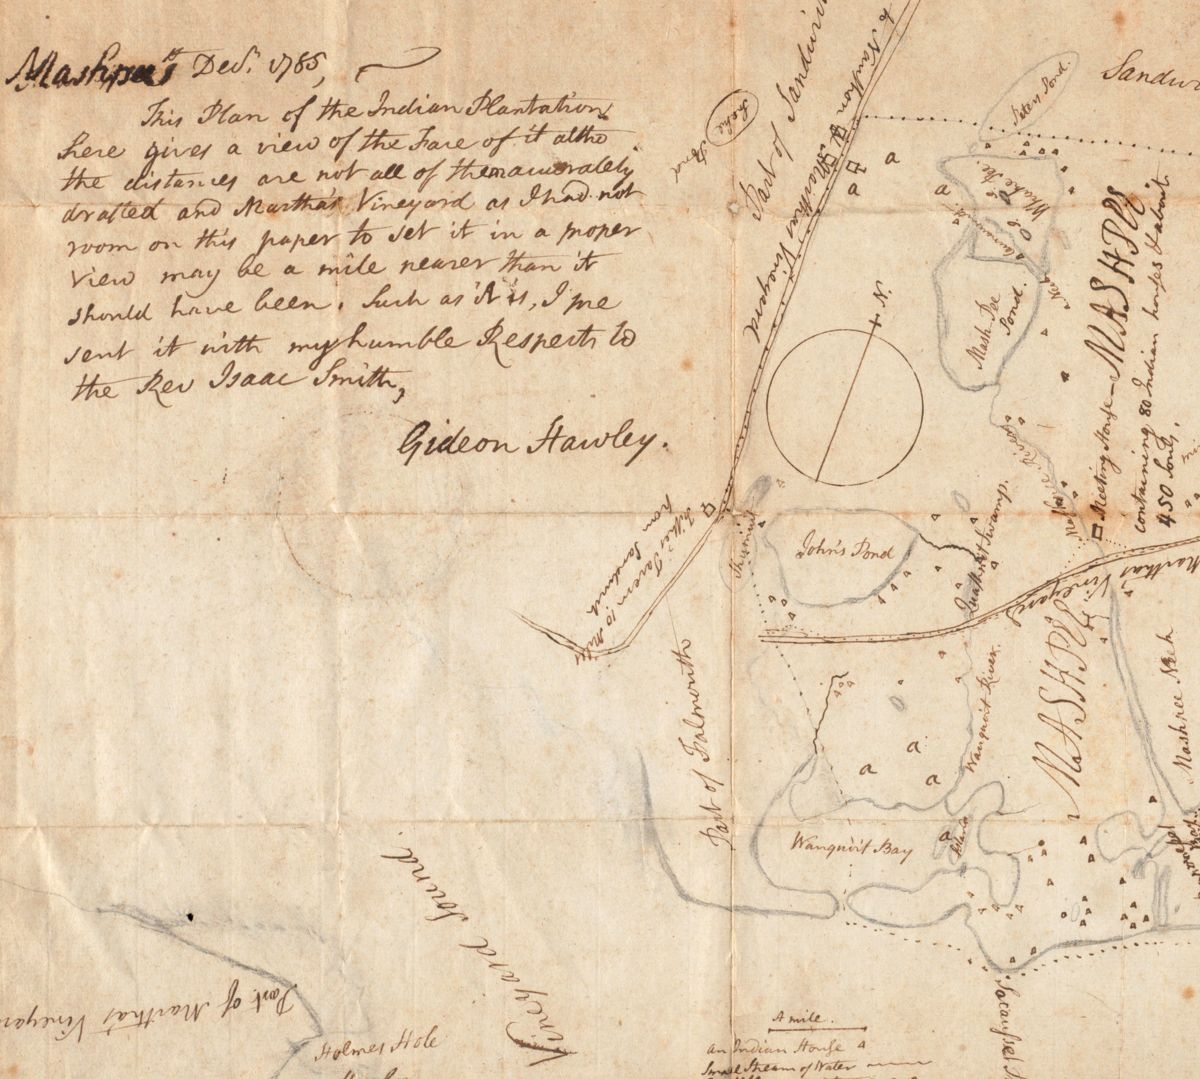 Mashpee Decr. 1785,
This Plan of the Indian Plantation
here gives a view of the Face of it altho
the distances are not all of them accurately
drafted and Martha's Vineyard as I had not
room on this paper to set it in a proper
view may be a mile nearer than it
should have been. Such as it is, I pre
sent it with my humble Respects to
the Rev Isaac Smith,
Gideon Hawley.
Part of Sandwich
Sandwi
Peters Pond.
Mash Pee
Pond.
N.
Meeting House MASHPEE
containing 80 Indian houses & about
450 Souls,
Mashpee River
Fish's Tavern 10 Miles
from Sandwich
John's Pond
Quashnet Swamp.
Martha's Vineyard
MASHPEE
Mashpee Neck
Wanquoit River.
Part of Falmouth
Wanquoit Bay
Island
Vineyard Sound
Part of Martha's Vineyard
Holmes Hole
A mile.
an Indian House
Small Stream of Water